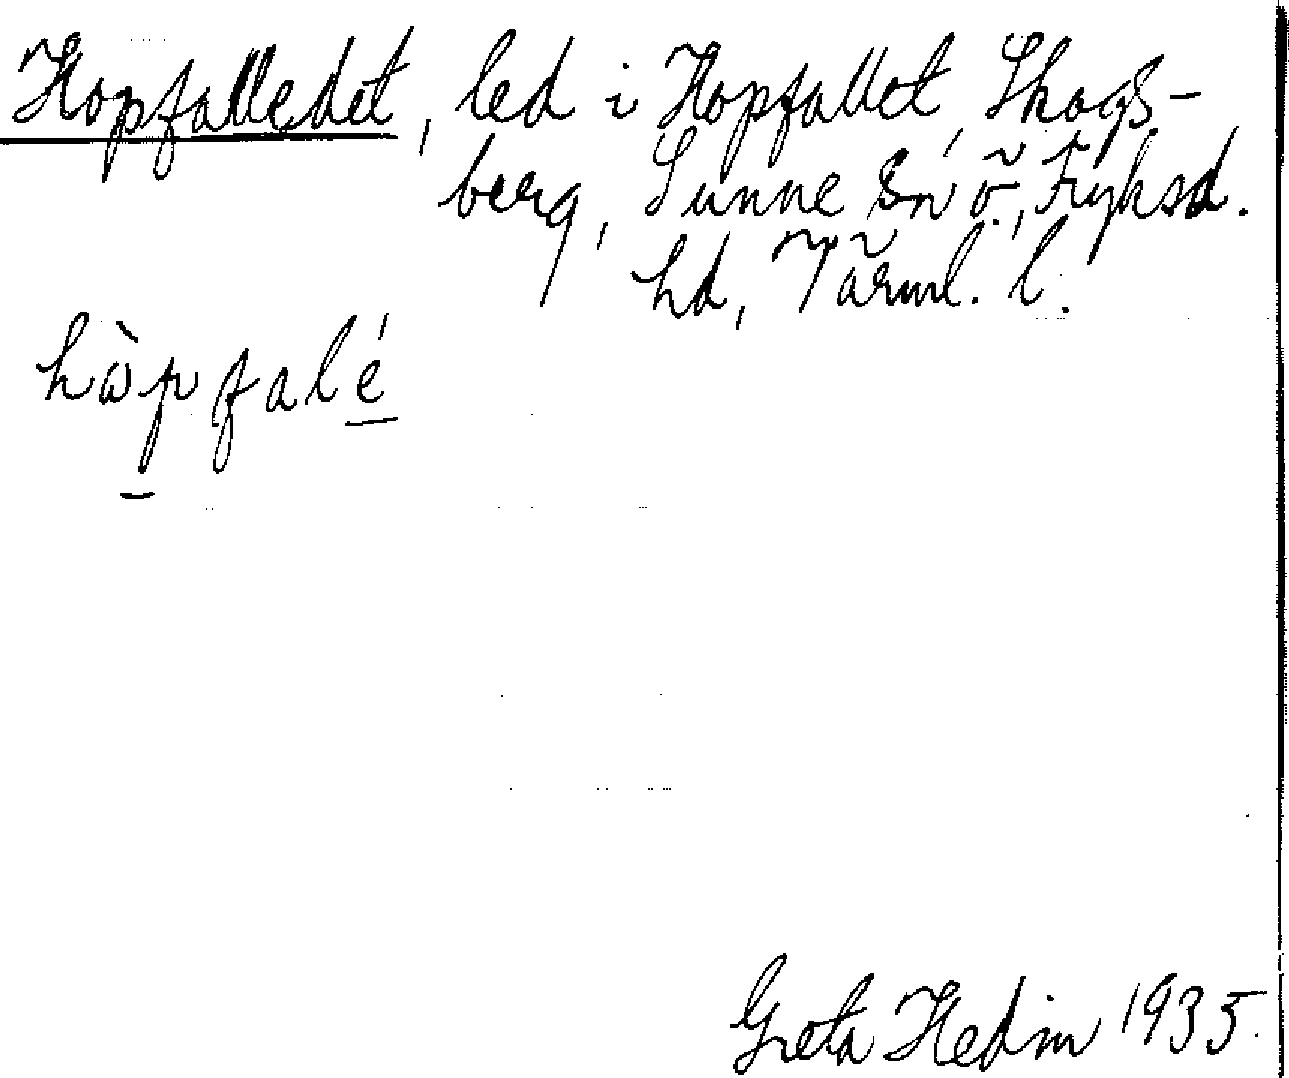 Hopfalledet, led i Hopfallet, Skogs-
berg, Sunne sn ö., Fryksd.
hd, Värml. l.
hòpfalé
Greta Hedin 1935.